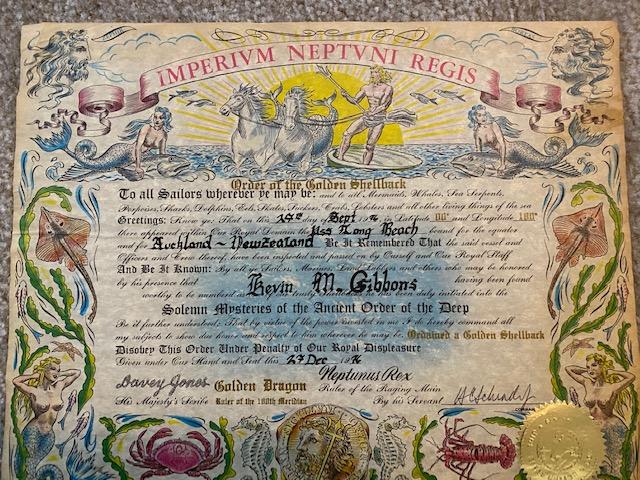 IMPERIVM NEPTVNI REGIS
Order of the Golden Shellback
To all Sailors wherever ye may be: and to all Mermaids, Whales, Sea Serpents,
Porpoises, Sharks, Dolphins, Eels, Skates, Suckers, Crabs, Lobsters and all other living things of the sea
Greetings: Know ye, That on this 25th day Sept 1976 in Latitude 00° and Longitude 180°
there appeared within Our Royal Domain the Uss Long Beach bound for the equator
and for Auckland ~ NewZealand Be It Remembered That the said vessel and
Officers and Crew thereof, have been inspected and passed on by Ourself and Our Royal Staff
And Be It Known: By all ye Sailors, Marines, Land Lubbers and others who may be honored
by his presence that Kevin M. Gibbons having been found
worthy to be numbered as one of our trusty Shellbacks he has been duly initiated into the
Solemn Mysteries of the Ancient Order of the Deep
Be it further understood: That by virtue of the power invested in me I do hereby command all
my subjects to show due honor and respect to him wherever he may be. Ordained a Golden Shellback
Disobey This Order Under Penalty of Our Royal Displeasure
Given under Our Hand and Seal this 27 Dec 1976
Davey Jones Golden Dragon Neptunus Rex
His Majesty's Scribe Ruler of the 180th Meridian Ruler of the Raging Main
By his Servant